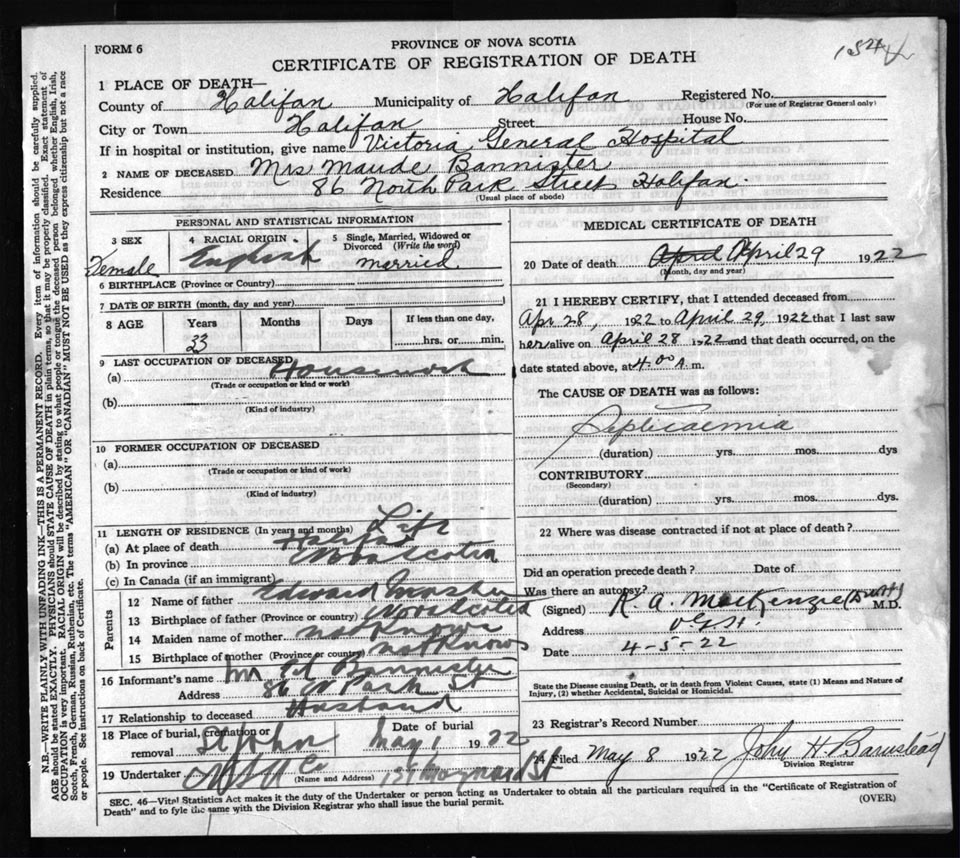 FORM 6
PROVINCE OF NOVA SCOTIA
CERTIFICATE OF REGISTRATION OF DEATH
1 PLACE OF DEATH—
County of Halifax Municipality of Halifax Registered No.
(For use of Registrar General only)
City or Town Halifax Street House No.
If in hospital or institution, give name Victoria General Hospital
2 NAME OF DECEASED Mrs Maude Bannister
Residence 86 North Park Street Halifax
(Usual place of abode)
PERSONAL AND STATISTICAL INFORMATION
3 SEX 4 RACIAL ORIGIN 5 Single, Married, Widowed or Divorced (Write the word)
Female English married
6 BIRTHPLACE (Province or Country)
7 DATE OF BIRTH (month, day and year)
8 AGE Years Months Days If less than one day,
33 hrs. or min.
9 LAST OCCUPATION OF DECEASED
(a) Housework
(Trade or occupation or kind or work)
(b)
(Kind of industry)
10 FORMER OCCUPATION OF DECEASED
(a)
(Trade or occupation or kind or work)
(b)
(Kind of industry)
11 LENGTH OF RESIDENCE (In years and months) Life
(a) At place of death Halifax
(b) In province Nova Scotia
(c) In Canada (if an immigrant)
Parents
12 Name of father Edward
13 Birthplace of father (Province or country) Nova Scotia
14 Maiden name of mother not known
15 Birthplace of mother (Province or country) not known
16 Informant's name Mr Ed Bannister
Address 86 N Park St
17 Relationship to deceased Husband
18 Place of burial, cremation or removal St John Date of burial May 1 1922
19 Undertaker
(Name and Address)
MEDICAL CERTIFICATE OF DEATH
20 Date of death April April 29 1922
(Month, day and year)
21 I HEREBY CERTIFY, that I attended deceased from
Apr 28, 1922 to April 29, 1922 that I last saw
her alive on April 28 1922 and that death occurred, on the
date stated above, at 4.00 A.m.
The CAUSE OF DEATH was as follows:
Septicaemia
(duration) yrs. mos. dys
CONTRIBUTORY
(Secondary)
(duration) yrs. mos. dys.
22 Where was disease contracted if not at place of death?
Did an operation precede death? Date of
Was there an autopsy?
(Signed) K. A. MacKenzie M.D.
Address V.G.H.
Date 4-5-22
State the Disease causing Death, or in death from Violent Causes, state (1) Means and Nature of Injury, (2) whether Accidental, Suicidal or Homicidal.
23 Registrar's Record Number
24 Filed May 8 1922 John H. Barnstead
Division Registrar
SEC. 46—Vital Statistics Act makes it the duty of the Undertaker or person acting as Undertaker to obtain all the particulars required in the "Certificate of Registration of
Death" and to fyle the same with the Division Registrar who shall issue the burial permit.
(OVER)
N.B.—WRITE PLAINLY WITH UNFADING INK—THIS IS A PERMANENT RECORD. Every item of information should be carefully supplied.
AGE should be stated EXACTLY. PHYSICIANS should STATE CAUSE OF DEATH in plain terms, so that it may be properly classified. Exact statement of
OCCUPATION is very important. RACIAL ORIGIN will be described by stating to what people or tongue the deceased person belonged whether English, Irish,
Scotch, French, German, Russian, Ruthenian, etc. The terms "AMERICAN" OR "CANADIAN" MUST NOT BE USED as they express citizenship but not a race
or people. See instructions on back of Certificate.